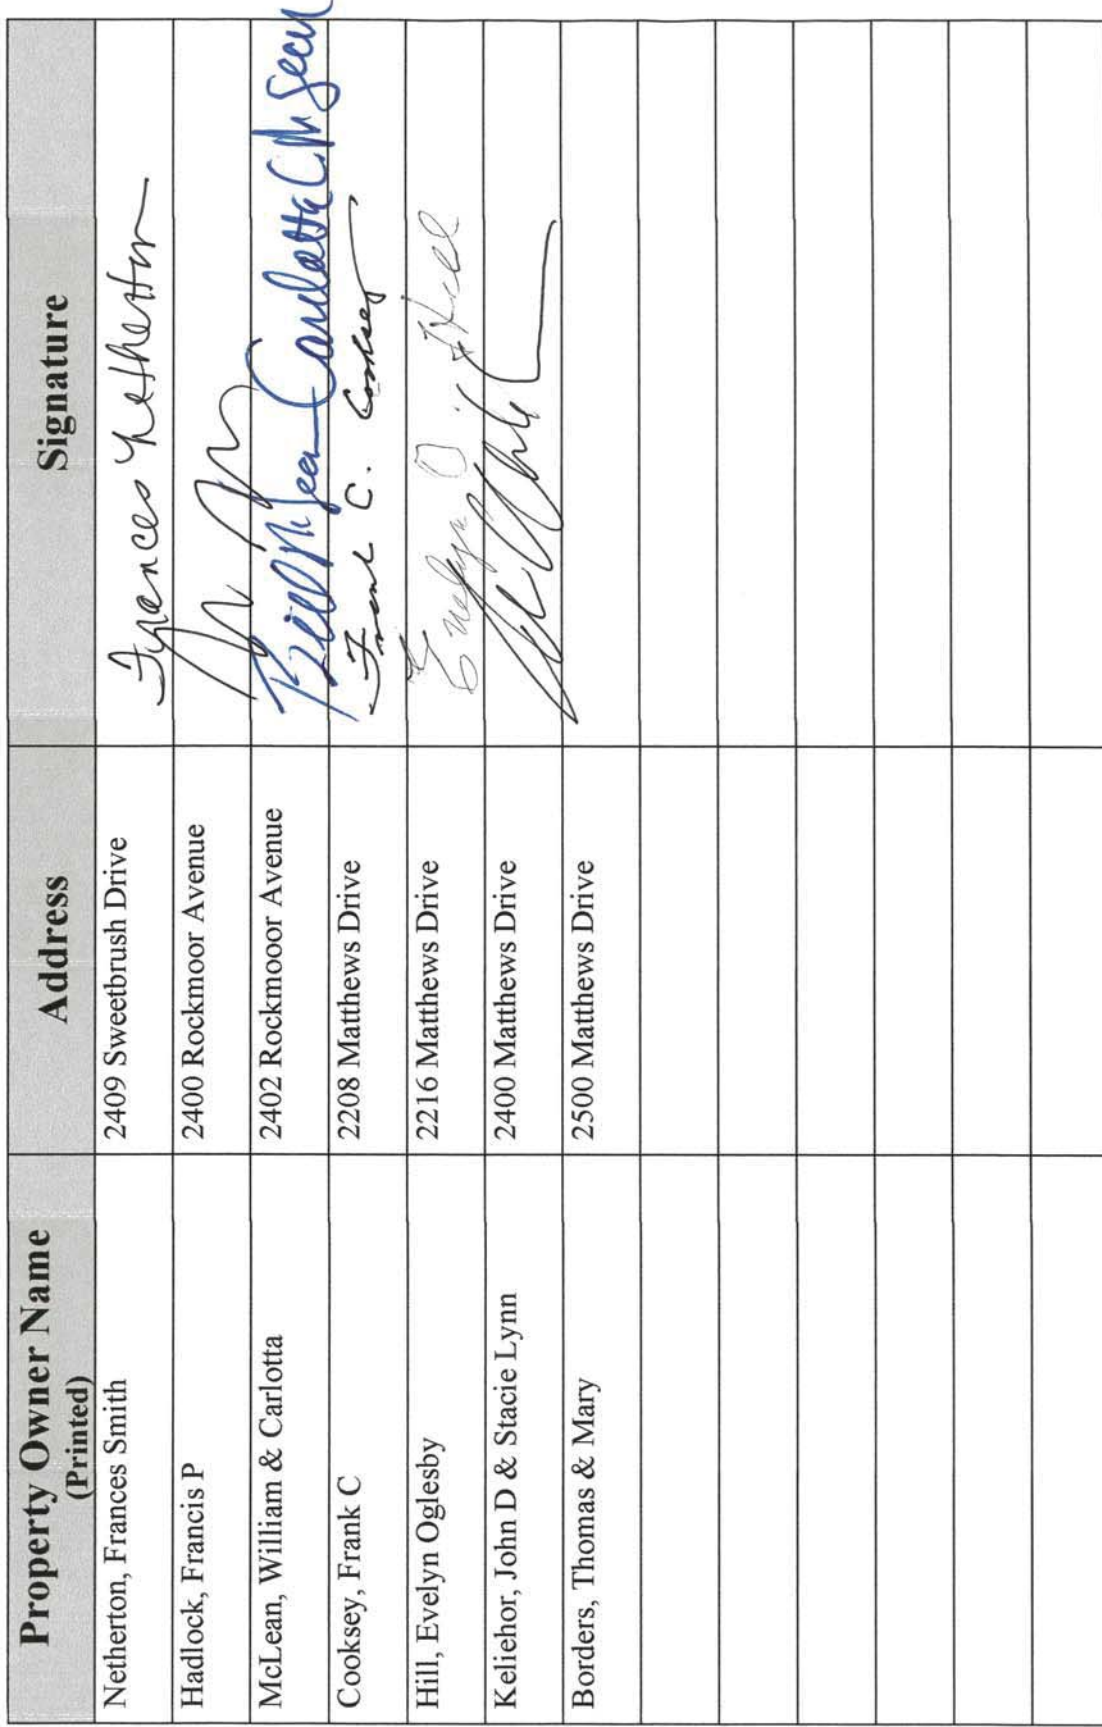 Property Owner Name Address Signature
(Printed)
Netherton, Frances Smith 2409 Sweetbrush Drive Frances Netherton
Hadlock, Francis P 2400 Rockmoor Avenue
McLean, William & Carlotta 2402 Rockmooor Avenue Bill McLean Carlotta C. McLean
Cooksey, Frank C 2208 Matthews Drive Frank C. Cooksey
Hill, Evelyn Oglesby 2216 Matthews Drive Evelyn O. Hill
Keliehor, John D & Stacie Lynn 2400 Matthews Drive
Borders, Thomas & Mary 2500 Matthews Drive